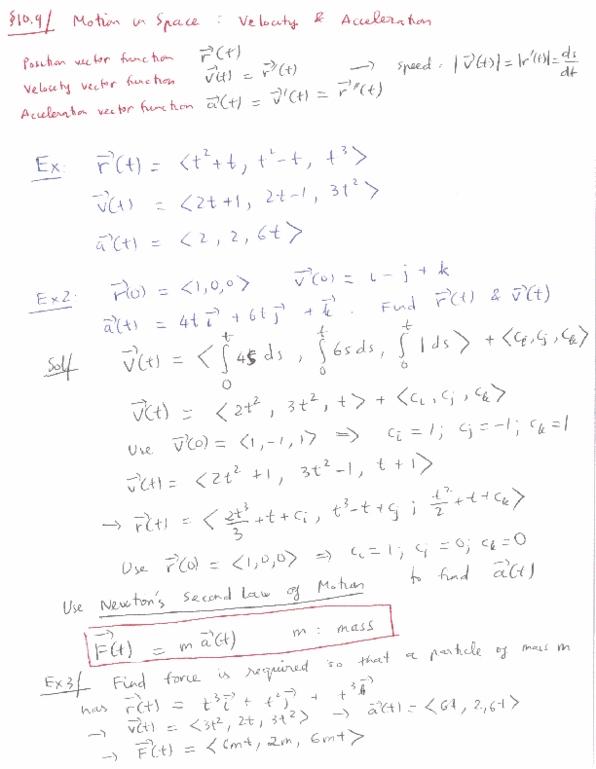 §10.9/ Motion in Space : Velocity & Acceleration
Position vector function r⃗(t)
Velocity vector function v⃗(t) = r⃗'(t) → speed: |v⃗(t)| = |r'(t)| = ds/dt
Acceleration vector function a⃗(t) = v⃗'(t) = r⃗''(t)
Ex: r⃗(t) = <t²+t, t²-t, t³>
v⃗(t) = <2t+1, 2t-1, 3t²>
a⃗(t) = <2, 2, 6t>
Ex2: r⃗(0) = <1,0,0> v⃗(0) = i - j + k
a⃗(t) = 4t i⃗ + 6t j⃗ + k⃗. Find r⃗(t) & v⃗(t)
Sol/ v⃗(t) = <∫₀ᵗ 4s ds, ∫₀ᵗ 6s ds, ∫₀ᵗ 1 ds> + <cᵢ, cⱼ, cₖ>
v⃗(t) = <2t², 3t², t> + <cᵢ, cⱼ, cₖ>
Use v⃗(0) = <1,-1,1> ⇒ cᵢ = 1; cⱼ = -1; cₖ = 1
v⃗(t) = <2t²+1, 3t²-1, t+1>
→ r⃗(t) = <2t³/3 + t + cᵢ, t³ - t + cⱼ ; t²/2 + t + cₖ>
Use r⃗(0) = <1,0,0> ⇒ cᵢ = 1; cⱼ = 0; cₖ = 0
Use Newton's Second Law of Motion to find a⃗(t)
F⃗(t) = m a⃗(t) m: mass
Ex3/ Find force is required so that a particle of mass m
has r⃗(t) = t³ i⃗ + t² j⃗ + t³ k⃗
→ v⃗(t) = <3t², 2t, 3t²> → a⃗(t) = <6t, 2, 6t>
→ F⃗(t) = <6mt, 2m, 6mt>